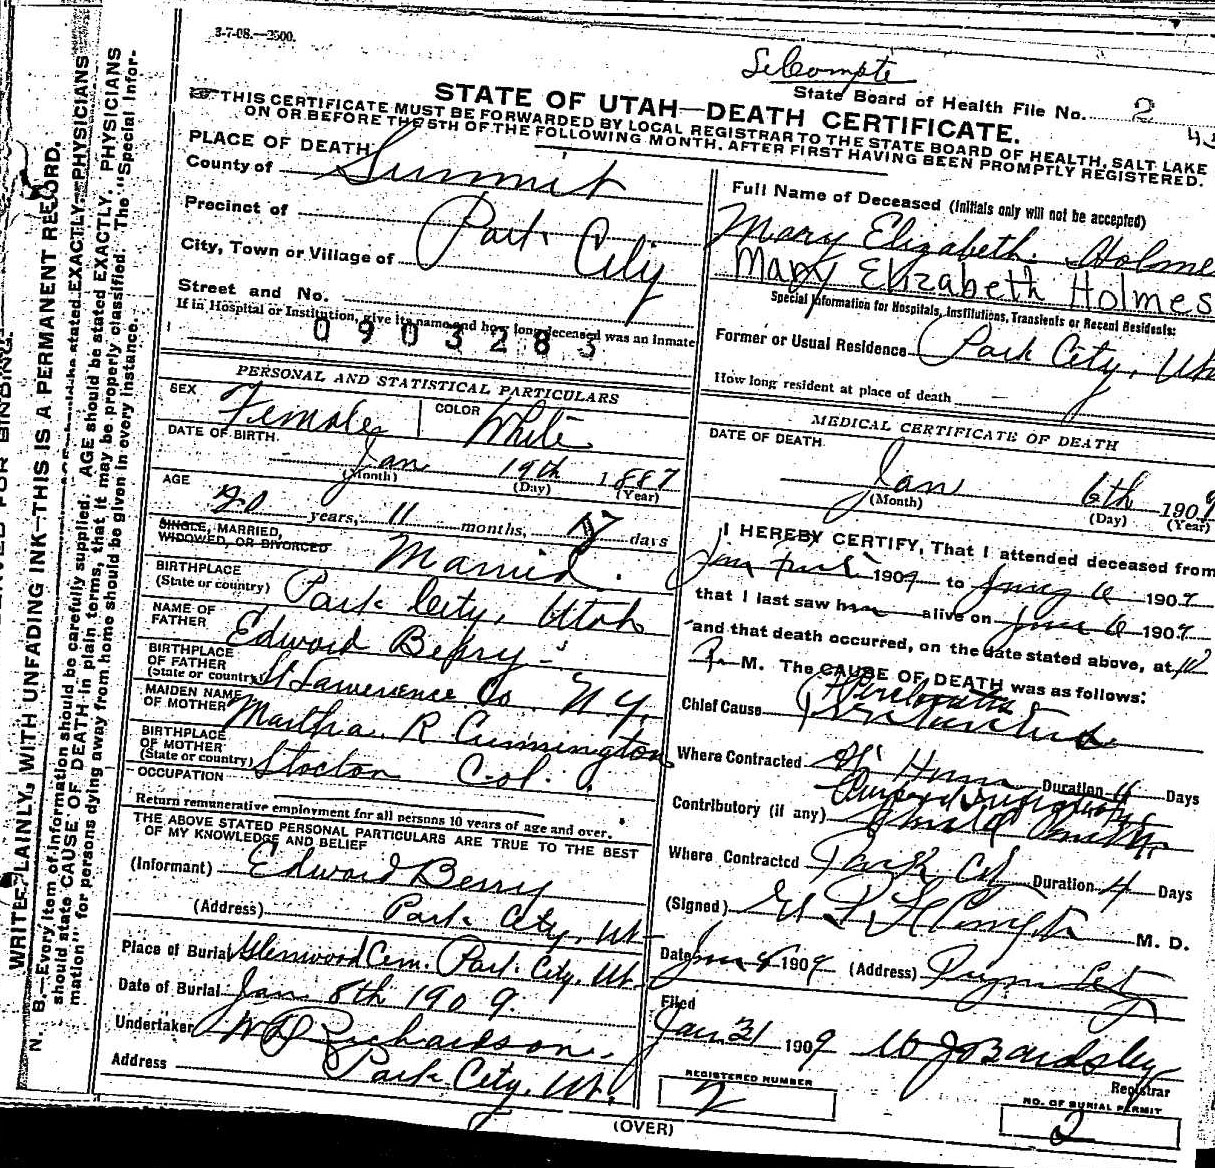 3-7-08.—2500.
LeCompte
State Board of Health File No. 2
STATE OF UTAH—DEATH CERTIFICATE.
THIS CERTIFICATE MUST BE FORWARDED BY LOCAL REGISTRAR TO THE STATE BOARD OF HEALTH, SALT LAKE
ON OR BEFORE THE 5TH OF THE FOLLOWING MONTH, AFTER FIRST HAVING BEEN PROMPTLY REGISTERED.
PLACE OF DEATH
County of Summit
Precinct of
Park City
City, Town or Village of
Street and No.
If in Hospital or Institution, give its name and how long deceased was an inmate
0903283
PERSONAL AND STATISTICAL PARTICULARS
SEX Female COLOR White
DATE OF BIRTH.
Jan 19th 1887
(Month) (Day) (Year)
AGE
20 years, 11 months, days
SINGLE, MARRIED,
WIDOWED, OR DIVORCED Married.
BIRTHPLACE
(State or country) Park City, Utah
NAME OF
FATHER Edward Berry
BIRTHPLACE
OF FATHER
(State or country) St Lawerence Co. N Y.
MAIDEN NAME
OF MOTHER Martha R Cunnington
BIRTHPLACE
OF MOTHER
(State or country) Stocton Col.
OCCUPATION
Return remunerative employment for all persons 10 years of age and over.
THE ABOVE STATED PERSONAL PARTICULARS ARE TRUE TO THE BEST
OF MY KNOWLEDGE AND BELIEF
(Informant) Edward Berry
(Address) Park City, Ut
Place of Burial Glenwood Cem. Park City, Ut.
Date of Burial Jan 8th 1909.
Undertaker W D Richardson
Address Park City, Ut.
Full Name of Deceased (Initials only will not be accepted)
Mary Elizabeth Holme
Mary Elizabeth Holmes
Special Information for Hospitals, Institutions, Transients or Recent Residents:
Former or Usual Residence Park City, Uta
How long resident at place of death
MEDICAL CERTIFICATE OF DEATH
DATE OF DEATH
Jan 6th 1909
(Month) (Day) (Year)
I HEREBY CERTIFY, That I attended deceased from
1909 to 6 1909
that I last saw alive on 6 1909
and that death occurred, on the date stated above, at
P. M. The CAUSE OF DEATH was as follows:
Chief Cause
Where Contracted Duration 4 Days
Contributory (if any)
Where Contracted Park Duration 4 Days
(Signed) M. D.
Date 1909 (Address)
Filed
Jan 31 1909
Registrar
REGISTERED NUMBER
2
NO. OF BURIAL PERMIT
2
(OVER)
WRITE PLAINLY, WITH UNFADING INK—THIS IS A PERMANENT RECORD.
N. B.—Every item of information should be carefully supplied. AGE should be stated EXACTLY. PHYSICIANS
should state CAUSE OF DEATH in plain terms, that it may be properly classified. The "Special Infor-
mation" for persons dying away from home should be given in every instance.